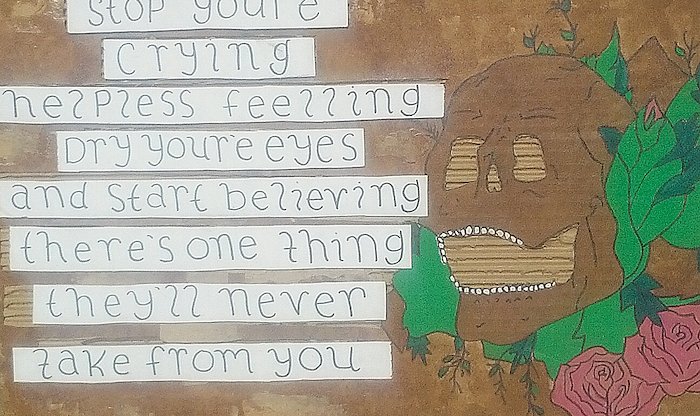 stop you're
crying
helpless feelling
Dry you're eyes
and start believing
there's one thing
they'll never
take from you